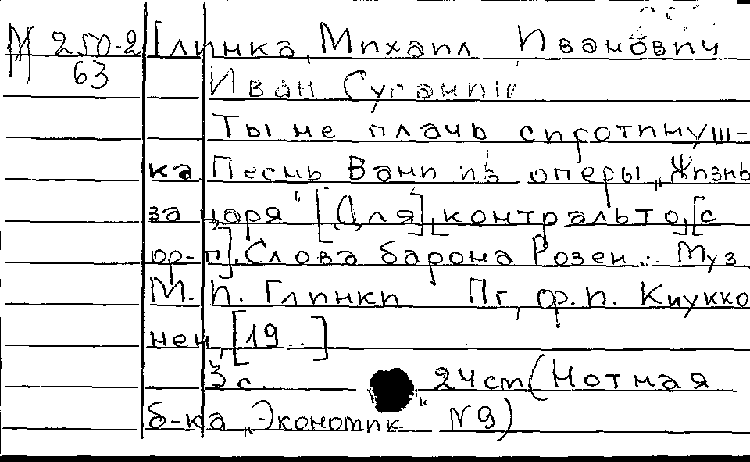 М 250-2 Глинка, Михаил Иванович
63 Иван Сусанин
Ты не плачь сиротинуш-
ка Песнь Вани из оперы „Жизнь
за царя" [Для], контральто, [с
ор-п]. Слова барона Розен.. Муз
М. И. Глинки Пг, ф. п. Киукко
нен, [19..]
3 с. 24 cm (Нотная
б-ка „Экономик" N 9)